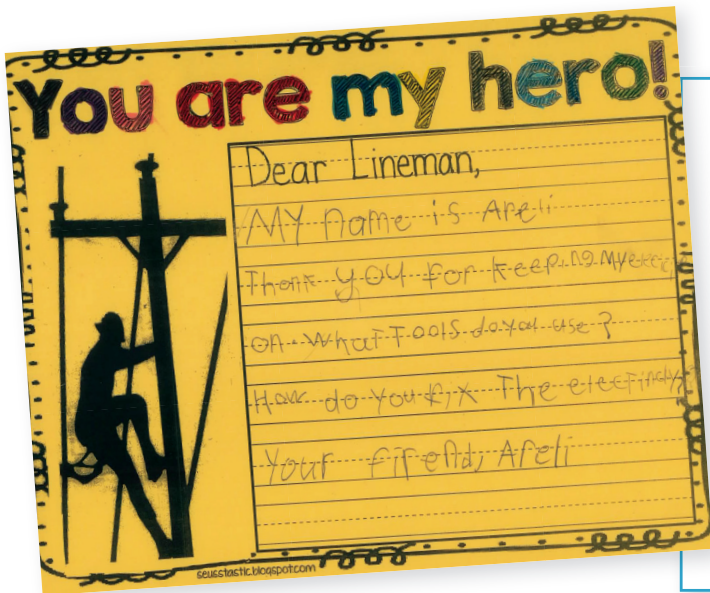 You are my hero!
Dear Lineman,
MY name is Areli
Thank you for keeping My
on. What Tools do you use?
How do you fix The
Your friend, Areli
seusstastic.blogspot.com